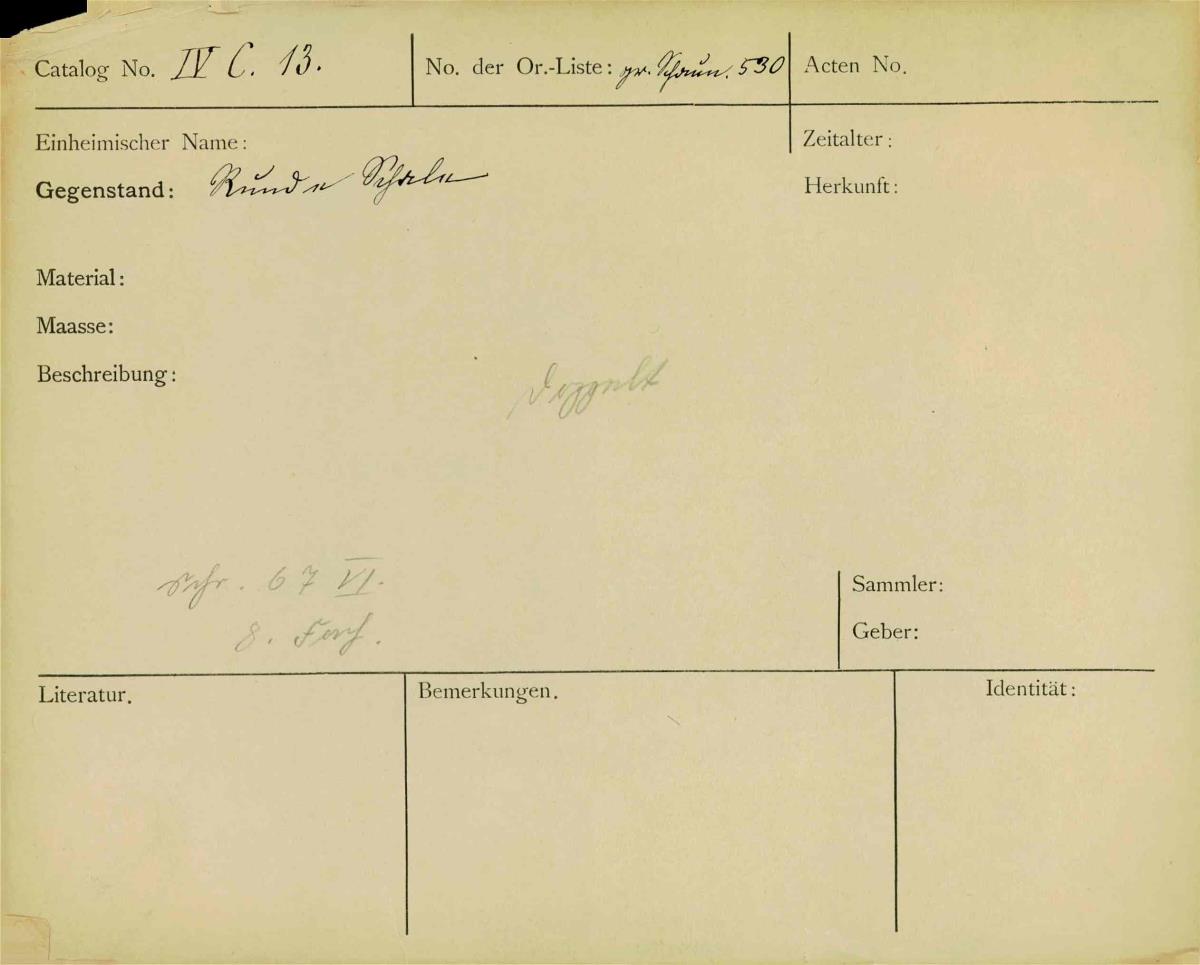 Catalog No. IV C. 13.
No. der Or.-Liste: gr. Schaun. 530
Acten No.
Einheimischer Name:
Zeitalter:
Gegenstand: Runde Schale
Herkunft:
Material:
Maasse:
Beschreibung:
Doppelt
Schr. 67 VI.
8. Fach.
Sammler:
Geber:
Literatur.
Bemerkungen.
Identität: